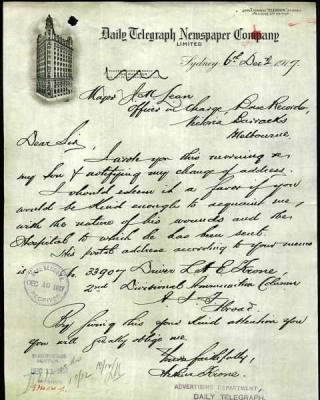 Daily Telegraph Newspaper Company
LIMITED
Sydney, 6th Decr 1917.
Major J. McLean
Officer in Charge Base Records,
Victoria Barracks
Melbourne
Dear Sir
I wrote you this morning re
my son & notifying my change of address.
I should esteem it a favor if you
would be kind enough to acquaint me,
with the nature of his wounds and the
Hospital to which he has been sent.
His postal address according to your memo
is No. 23907 Driver L. A. E. Krone,
2nd Divisional Ammunition Column
A I F
Abroad.
By giving this your kind attention you
you will greatly oblige me.
Yours faithfully,
Arthur Krone.
DEC 10 1917
DEC 11 1917
ADVERTISING DEPARTMENT,
DAILY TELEGRAPH.